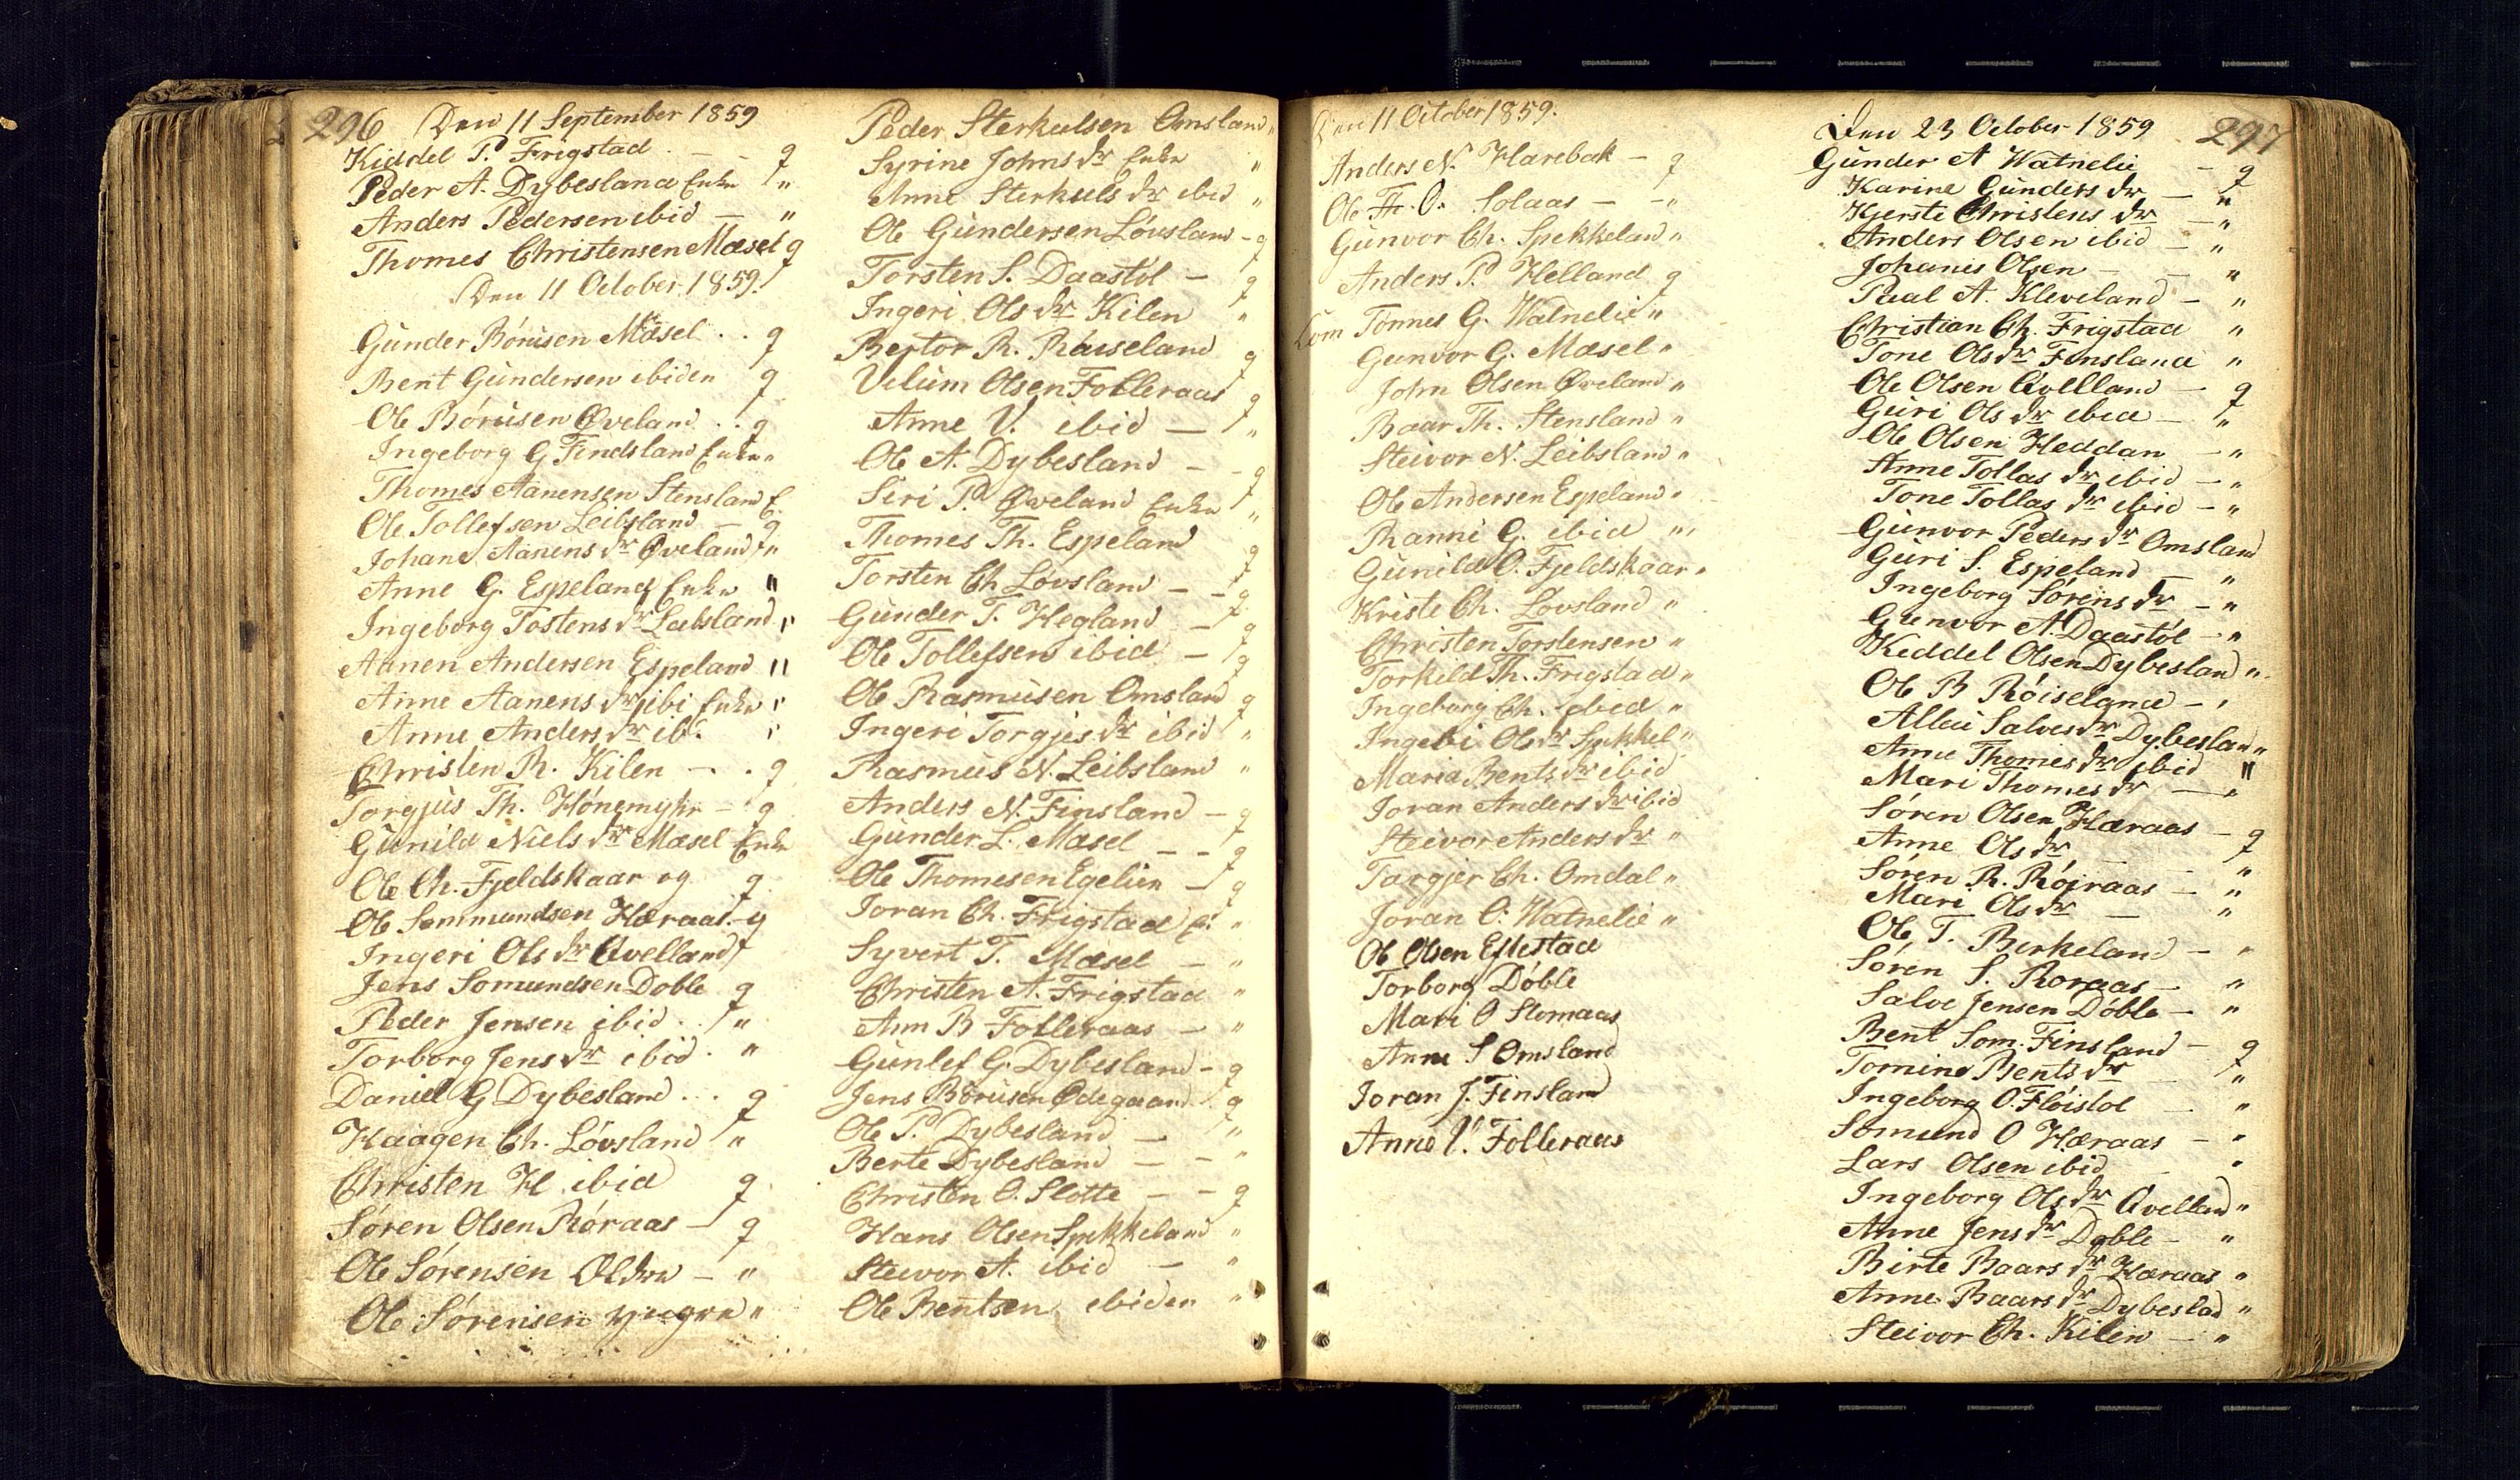 296 Den 11 September 1859
Kiddel P. Frigstad - - g
Peder A. Dybesland Enke "
Anders Pedersen ibid - "
Thomes Christensen Mæsel g
Den 11 October 1859.
Gunder Børusen Mæsel . . g
Bent Gundersen ibiden g
Ole Børusen Øveland . . g
Ingeborg G Findsland Enke "
Thomes Aanensen Stensland E.
Ole Tollefsen Leibsland - g
Johane Aanens dr Øveland "
Anne G. Espeland Enke "
Ingeborg Tostens dr Leibsland "
Aanen Andersen Espeland "
Anne Aanens dr ibi Enke "
Anne Anders dr ib. "
Christen R. Kilen - . g
Torgjus Th. Hønemyhr - g
Gunild Niels dr Mæsel Enke
Ole Ch. Fjeldskaar og g
Ole Sommundsen Hæraas - g
Ingeri Ols dr Qvelland
Jens Somundsen Doble g
Peder Jensen ibid . "
Torborg Jens dr ibid . "
Daniel G Dybesland . . g
Haagen Ch. Løvsland "
Christen H. ibid g
Søren Olsen Røraas - g
Ole Sørensen Ældre - "
Ole Sørensen yngre "
Peder Sterkulsen Omsland "
Syrine Johns dr Enke "
Anne Sterkuls dr ibid "
Ole Gundersen Løvsland - g
Torsten S. Daastøl - g
Ingeri Ols dr Kilen "
Bertor R. Røiseland g
Vilum Olsen Folleraas g
Anne V. ibid - "
Ole A. Dybesland - - g
Siri P. Øveland Enke "
Thomes Th. Espeland g
Torsten Ch Løvsland - - g
Gunder T. Hegland - g
Ole Tollefsen ibid - g
Ole Rasmusen Omsland g
Ingeri Torgjes dr ibid "
Rasmus N. Leibsland "
Anders N. Finsland - g
Gunder L. Mæsel - - g
Ole Thomesen Egelien - g
Joran Ch. Frigstad E. "
Syvert T. Mæsel - "
Christen A. Frigstad "
Ann B Folleraas - "
Gunlef G. Dybesland - g
Jens Børusen Ødegaard . g
Ole P. Dybesland - "
Berte Dybesland - - "
Christen O. Slotte - - g
Hans Olsen Spekkeland "
Steivor A. ibid - "
Ole Bentsen ibiden "
Den 11 October 1859.
Anders N. Harebak - g
Ole Th. O. Solaas - - "
Gunvor Ch. Spekkeland "
Anders P. Helland g
Tønnes G. Watnelie "
Gunvor G. Mæsel "
John Olsen Øveland "
Baar Th. Stensland "
Steivor N. Leibsland "
Ole Andersen Espeland "
Ranni G. ibid "
Gunild O. Fjeldskaar "
Kriste Ch. Løvsland "
Christen Torstensen "
Torkild Th. Frigstad "
Ingeborg Ch. ibid "
Ingebi Ols dr Spekkel "
Maria Bents dr ibid
Joran Anders dr ibid
Steivor Anders dr "
Targjer Ch. Omdal "
Joran O. Watnelie "
Ole Olsen Eftestad
Torborg Døble
Mari O Stomaas
Anne S Omsland
Joran J. Finsland
Anne V. Folleraas
Den 23 October 1859 297
Gunder A Watnelie - g
Karine Gunders dr - "
Kjerste Christens dr - "
Anders Olsen ibid - "
Johanis Olsen - - "
Paal A. Kleveland - "
Christian Ch. Frigstad "
Tone Ols dr Finsland "
Ole Olsen Qvelland - g
Guri Ols dr ibid - "
Ole Olsen Heddan - "
Anne Tollas dr ibid - "
Tone Tollas dr ibid - "
Gunvor Peders dr Omsland
Guri S. Espeland - "
Ingeborg Sørens dr - "
Gunvor A. Daastøl - "
Kiddel Olsen Dybesland "
Ole B Røiseland - "
Alleu Salves dr Dybesland "
Anne Thomes dr ibid "
Mari Thomes dr - "
Søren Olsen Hæraas - g
Anne Ols dr - "
Søren R. Røiraas - "
Mari Ols dr - "
Ole T. Birkeland - "
Søren S. Roraas - "
Salve Jensen Døble - "
Bent Som. Finsland - g
Tomine Bents dr - "
Ingeborg O. Fløistol - "
Somund O Hæraas - "
Lars Olsen ibid "
Ingeborg Ols dr Qvelland "
Anne Jens dr Doble - "
Birte Baars dr Hæraas "
Anne Baars dr Dybeslad "
Steivor Ch. Kilen - "